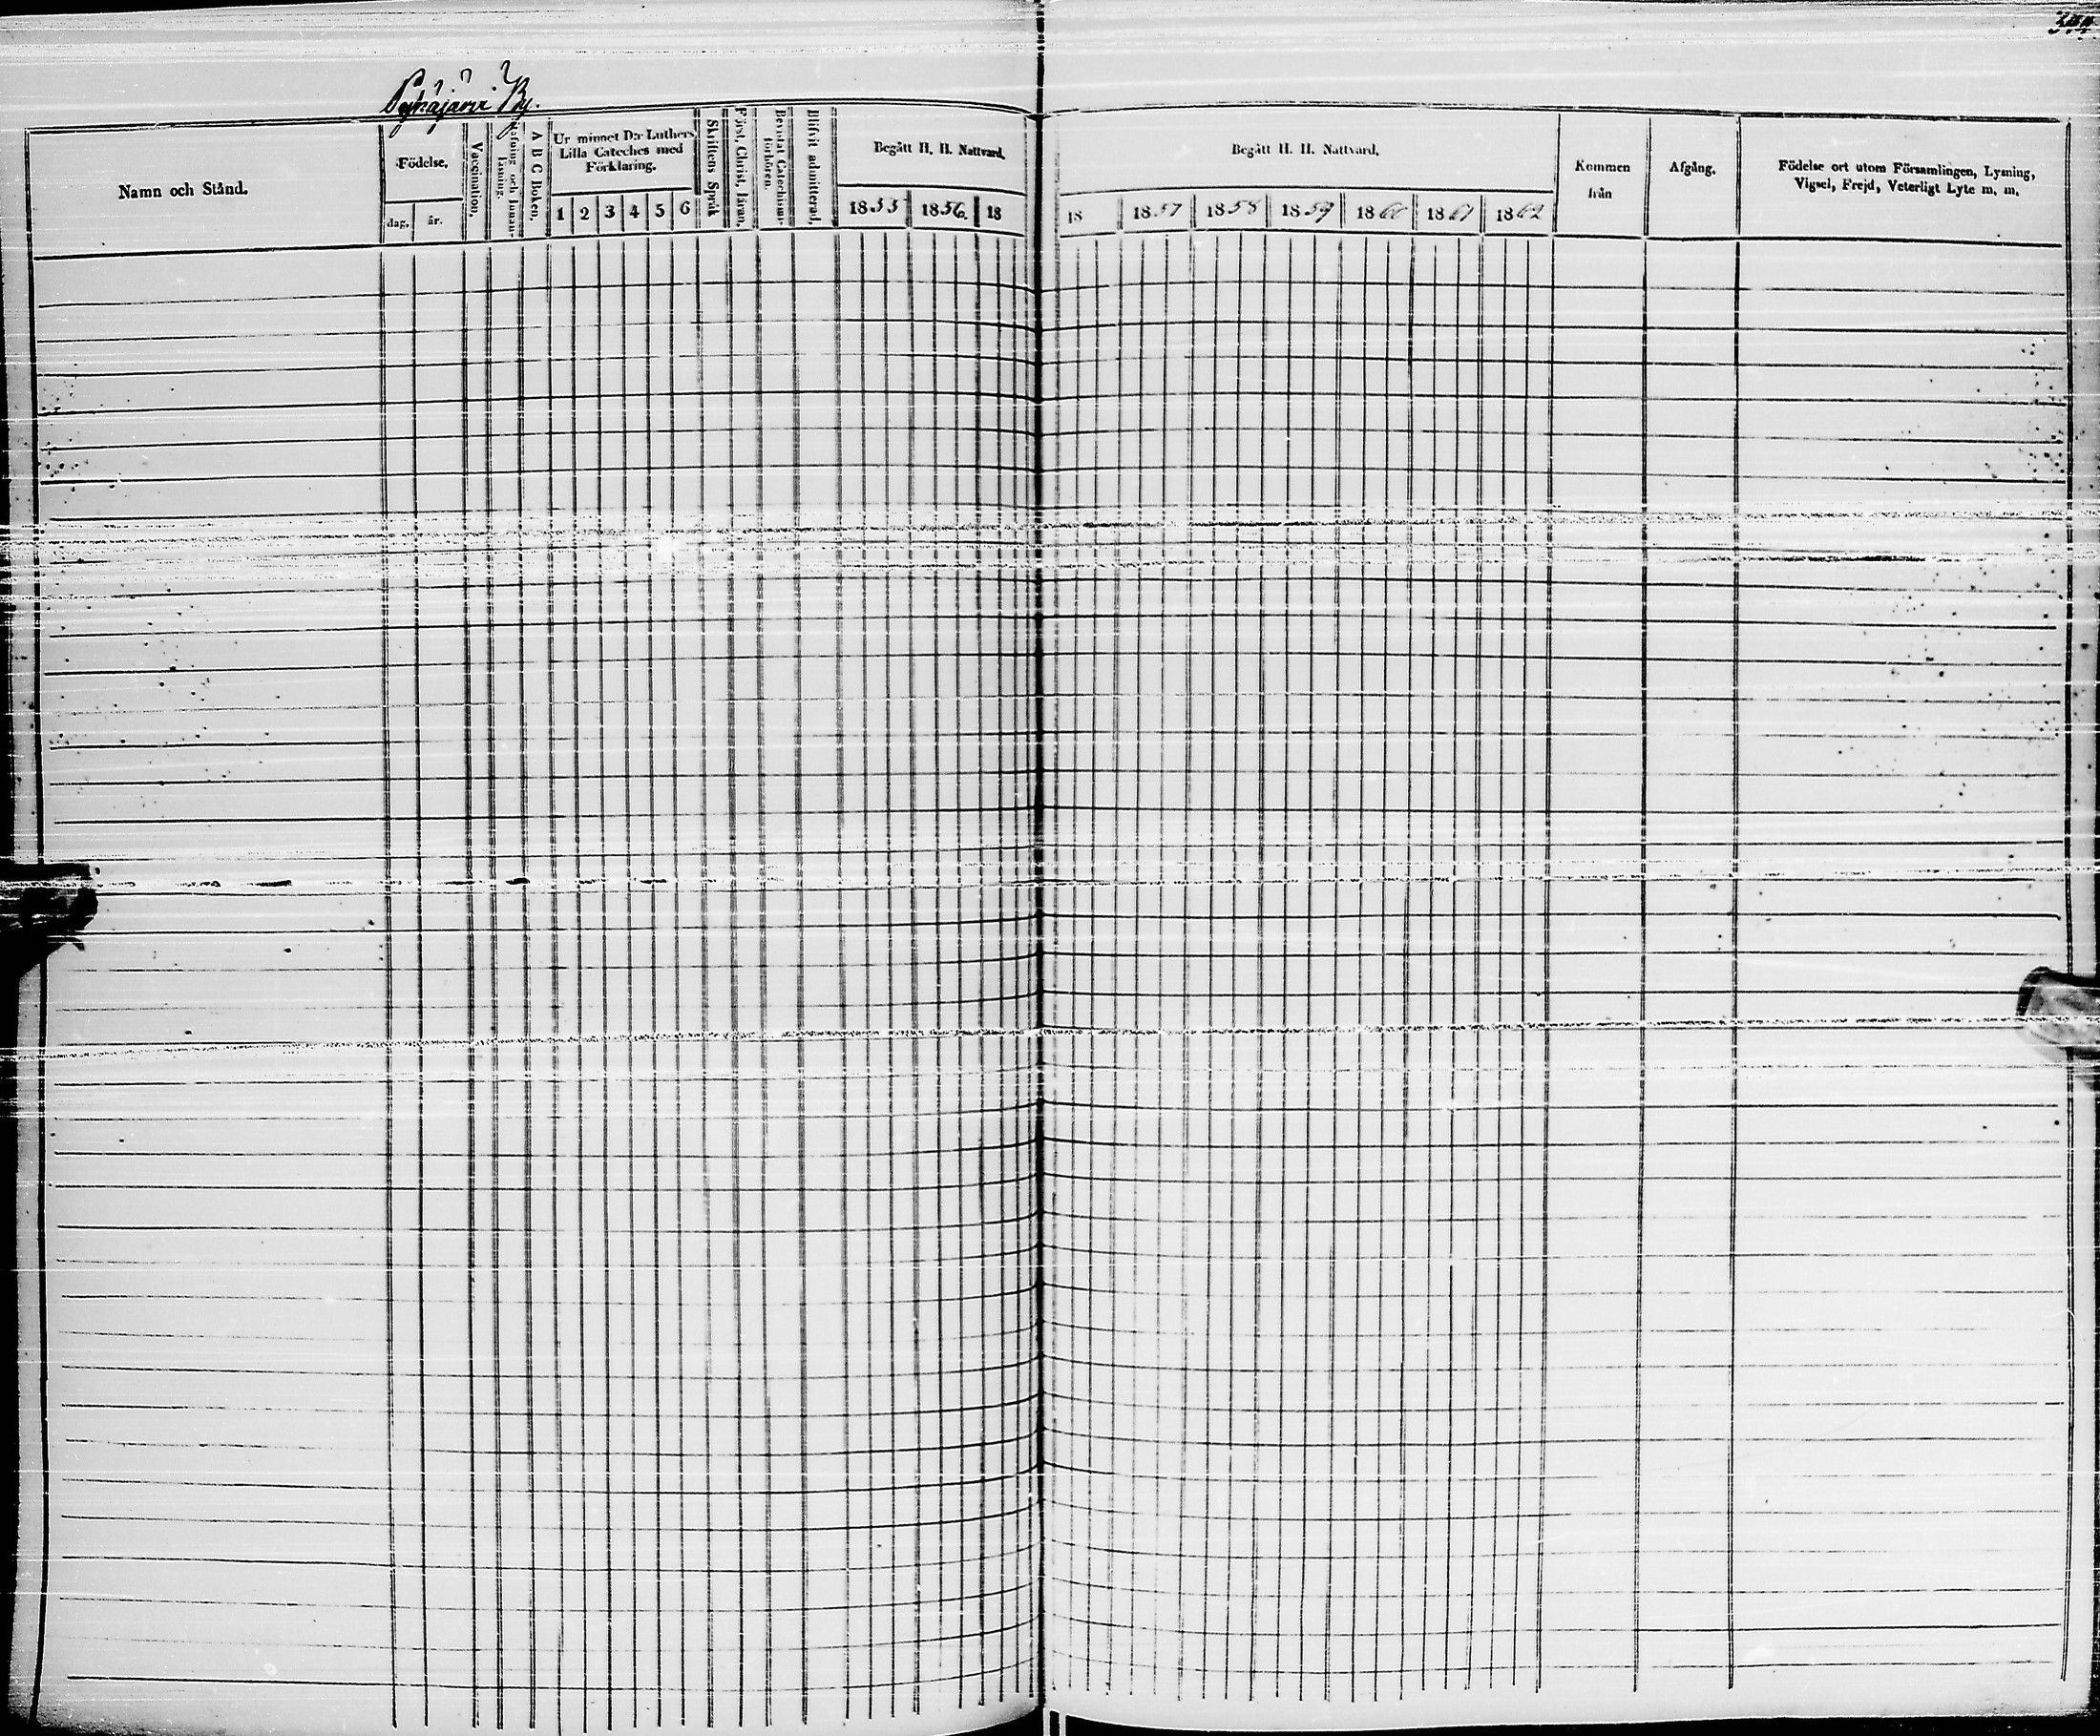 Pyhäjärvi By.
Namn och Stånd.
Födelse.
dag. år.
Vaccination.
Stafning och Innan-
läsning.
A B C Boken.
Ur minnet D:r Luthers
Lilla Cateches med
Förklaring.
1 2 3 4 5 6
Skriftens Språk
Först. Christ. läran.
Bevistat Catechismi-
förhören.
Blifvit admitterad.
Begått H. H. Nattvard.
1855 1856. 18
Begått H. H. Nattvard.
18 1857 1858 1859 1860 1861 1862
Kommen
från
Afgång.
Födelse ort utom Församlingen, Lysning,
Vigsel, Frejd, Veterligt Lyte m. m.